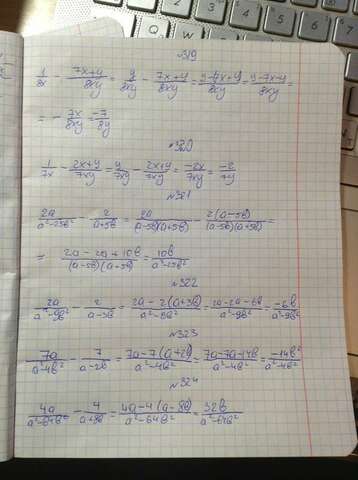 №319
1/8x - 7x+y/8xy = y/8xy - 7x+y/8xy = y-7x+y/8xy = y-7x-y/8xy =
= - 7x/8xy = -7/8y
№320
1/7x - 2x+y/7xy = y/7xy - 2x+y/7xy = -2x/7xy = -2/7y
№321
2a/a²-25b² - 2/a+5b = 2a/(a-5b)(a+5b) 2(a-5b)/(a-5b)(a+5b) =
= 2a-2a+10b/(a-5b)(a+5b) = 10b/a²-25b²
№322
2a/a²-9b² - 2/a-3b = 2a-2(a+3b)/a²-9b² = 2a-2a-6b/a²-9b² = -6b/a²-9b²
№323
7a/a²-4b² - 7/a-2b = 7a-7(a+2b)/a²-4b² = 7a-7a-14b/a²-4b² = -14b²/a²-4b²
№324
4a/a²-64b² - 4/a+8b = 4a-4(a-8b)/a²-64b² = 32b/a²-64b²